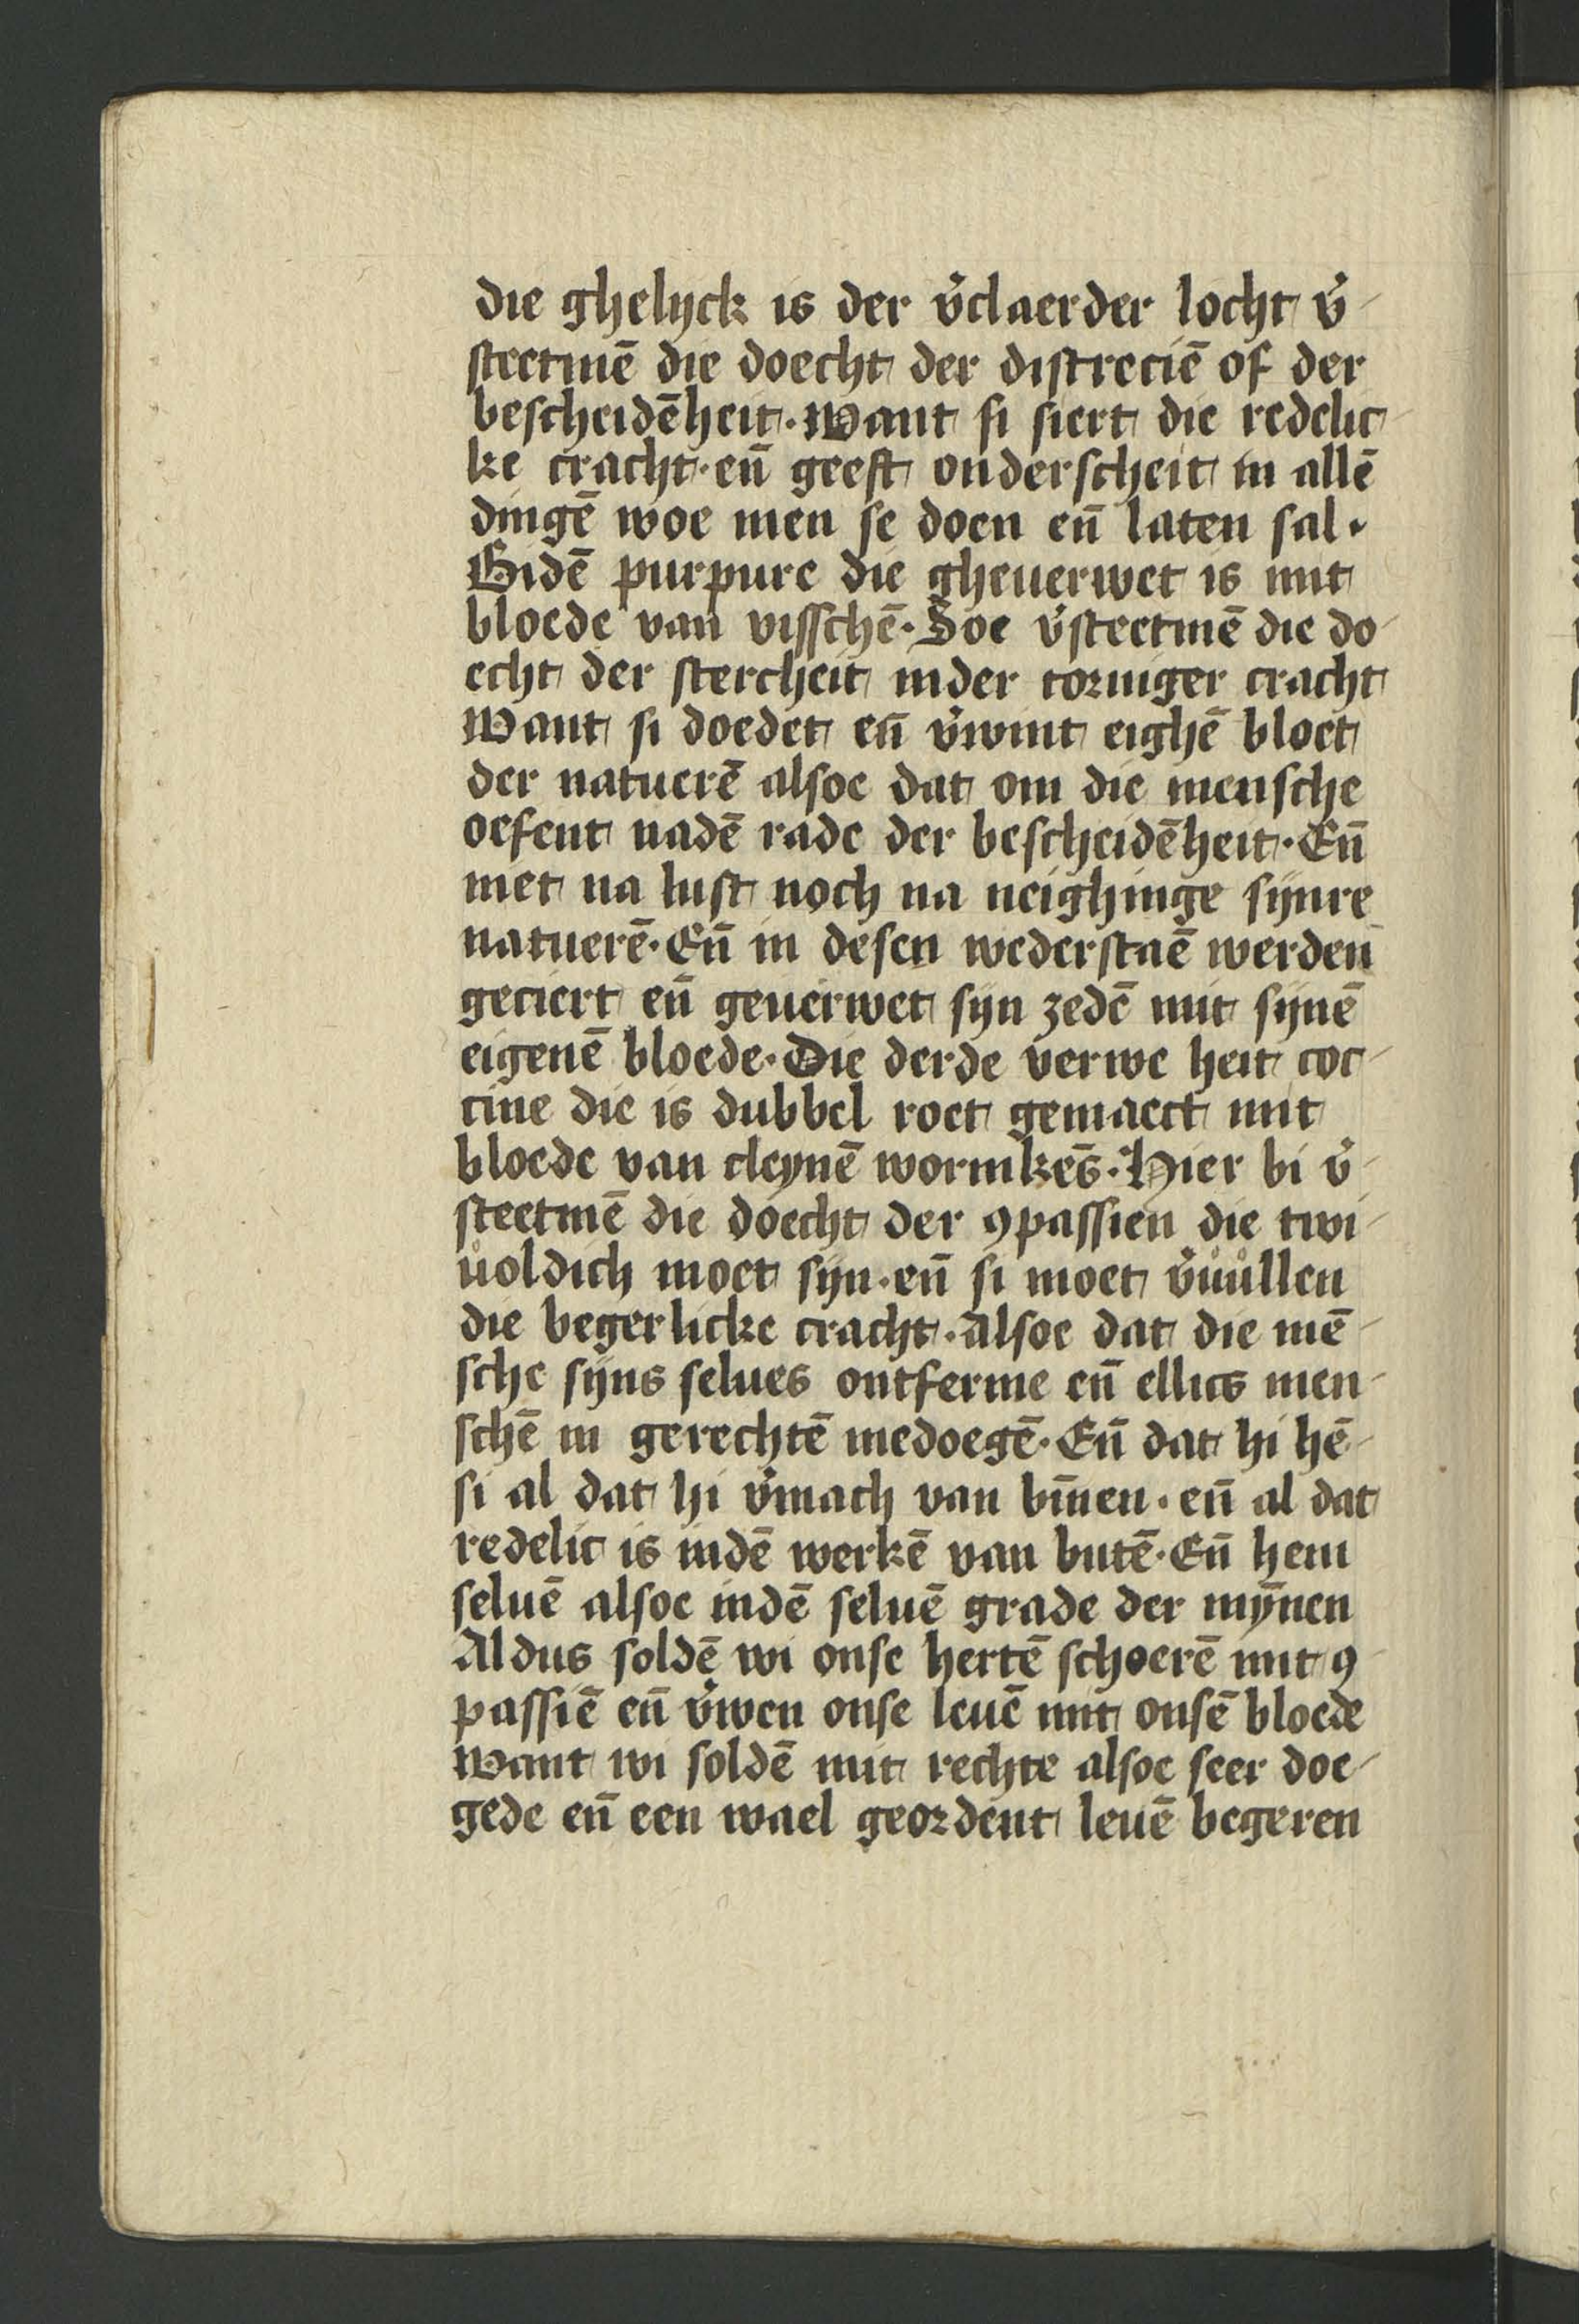 die ghelyck is der v̉claerder locht v̉-
steetmē die doecht der distreciē of der
bescheidēheit. Want si siert die redelic-
ke cracht. eñ geeft onderscheit in allē
dingē woe men se doen eñ laten sal.
Bidē purpure die gheuerwet is mit
bloede van visschē. Soe v̉steetmē die do-
echt der stercheit inder torniger cracht
Want si doedet eñ v̉wint eighē bloet
der natuerē alsoe dat om die mensche
oefent nadē rade der bescheidēheit. Eñ
niet na lust noch na neighinge synre
natuerē. Eñ in desen wederstaē werden
geciert eñ geuerwet syn zedē mit synē
eigenē bloede. Die derde verwe heit coc-
cine die is dubbel roet gemaect mit
bloede van cleynē wormkēs. Hier bi v̉-
steetmē die doecht der ꝯpassien die twi-
uoldich moet syn. eñ si moet v̉uůllen
die begerlicke cracht. Alsoe dat die mē-
sche syns selues ontferme eñ ellics men-
schē in gerechtē medoegē. Eñ dat hi hē-
si al dat hi v̉mach van bīnen. eñ al dat
redelic is indē werkē van butē. Eñ hem
seluē alsoe indē seluē grade der mȳnen
Aldus soldē wi onse hertē schoerē mit ꝯ-
passiē eñ v̉wen onse leuē mit onsē bloede
Want wi soldē mit rechte alsoe seer doe-
gede eñ een wael geordent leuē begeren